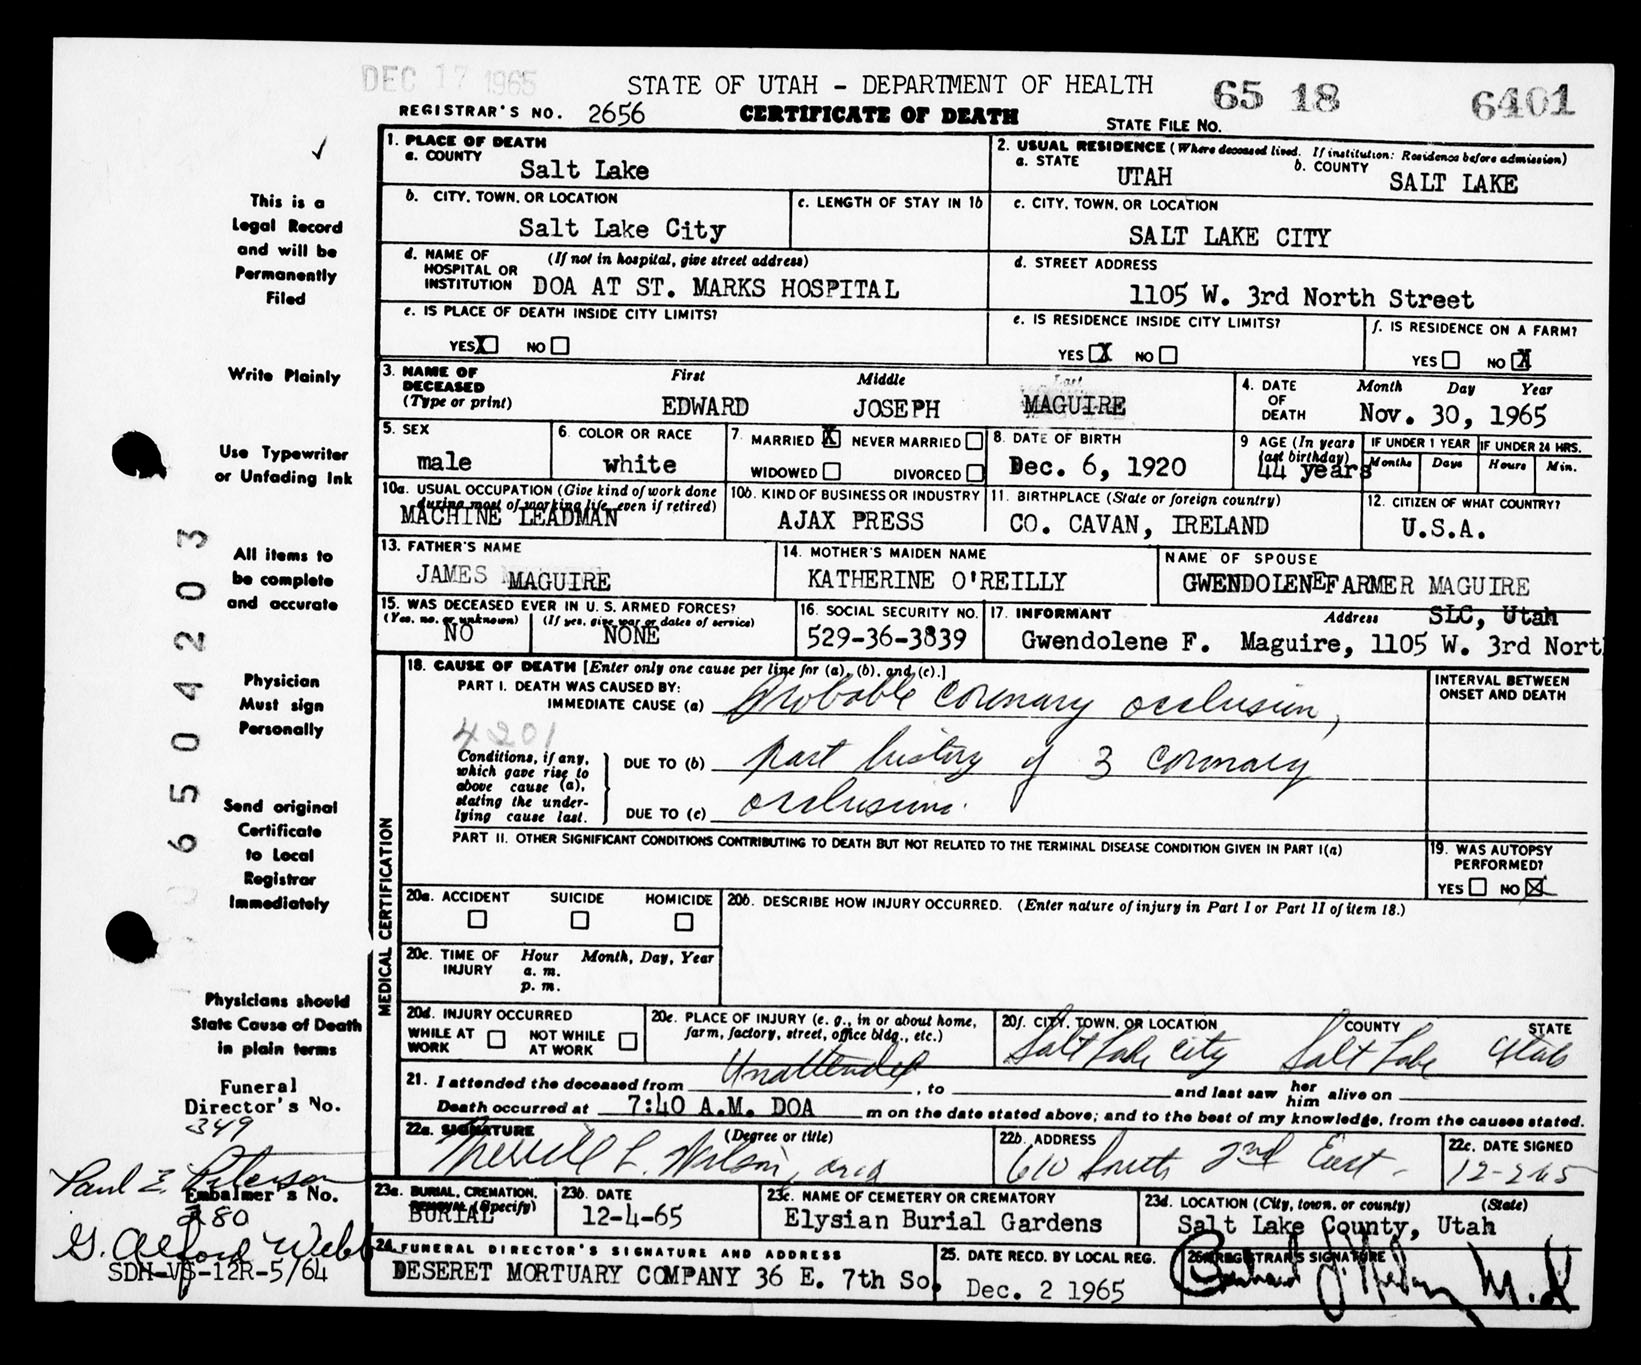 DEC 17 1965
STATE OF UTAH - DEPARTMENT OF HEALTH
65 18 6401
REGISTRAR'S NO. 2656
CERTIFICATE OF DEATH
STATE FILE NO.
1. PLACE OF DEATH
a. COUNTY
Salt Lake
2. USUAL RESIDENCE (Where deceased lived. If institution: Residence before admission)
a. STATE
UTAH
b. COUNTY
SALT LAKE
b. CITY, TOWN, OR LOCATION
Salt Lake City
c. LENGTH OF STAY IN 1b
c. CITY, TOWN, OR LOCATION
SALT LAKE CITY
d. NAME OF HOSPITAL OR INSTITUTION
(If not in hospital, give street address)
DOA AT ST. MARKS HOSPITAL
d. STREET ADDRESS
1105 W. 3rd North Street
e. IS PLACE OF DEATH INSIDE CITY LIMITS?
YES X NO
e. IS RESIDENCE INSIDE CITY LIMITS?
YES X NO
f. IS RESIDENCE ON A FARM?
YES NO X
3. NAME OF DECEASED (Type or print)
First Middle Last
EDWARD JOSEPH MAGUIRE
4. DATE OF DEATH
Month Day Year
Nov. 30, 1965
5. SEX
male
6. COLOR OR RACE
white
7. MARRIED X NEVER MARRIED
WIDOWED DIVORCED
8. DATE OF BIRTH
Dec. 6, 1920
9 AGE (In years last birthday)
44 years
IF UNDER 1 YEAR
Months Days
IF UNDER 24 HRS.
Hours Min.
10a. USUAL OCCUPATION (Give kind of work done during most of working life, even if retired)
MACHINE LEADMAN
10b. KIND OF BUSINESS OR INDUSTRY
AJAX PRESS
11. BIRTHPLACE (State or foreign country)
CO. CAVAN, IRELAND
12. CITIZEN OF WHAT COUNTRY?
U.S.A.
13. FATHER'S NAME
JAMES MAGUIRE
14. MOTHER'S MAIDEN NAME
KATHERINE O'REILLY
NAME OF SPOUSE
GWENDOLENE FARMER MAGUIRE
15. WAS DECEASED EVER IN U. S. ARMED FORCES?
(Yes, no, or unknown) (If yes, give war or dates of service)
NO NONE
16. SOCIAL SECURITY NO.
529-36-3839
17. INFORMANT Address
SLC, Utah
Gwendolene F. Maguire, 1105 W. 3rd North
MEDICAL CERTIFICATION
18. CAUSE OF DEATH [Enter only one cause per line for (a), (b), and (c).]
PART I. DEATH WAS CAUSED BY:
IMMEDIATE CAUSE (a) Probable coronary occlusion,
4201
Conditions, if any, which gave rise to above cause (a), stating the underlying cause last.
DUE TO (b) past history of 3 coronary
DUE TO (c) occlusions.
INTERVAL BETWEEN ONSET AND DEATH
PART II. OTHER SIGNIFICANT CONDITIONS CONTRIBUTING TO DEATH BUT NOT RELATED TO THE TERMINAL DISEASE CONDITION GIVEN IN PART I(a)
19. WAS AUTOPSY PERFORMED?
YES NO X
20a. ACCIDENT SUICIDE HOMICIDE
20b. DESCRIBE HOW INJURY OCCURRED. (Enter nature of injury in Part I or Part II of item 18.)
20c. TIME OF INJURY
Hour Month, Day, Year
a. m.
p. m.
20d. INJURY OCCURRED
WHILE AT WORK NOT WHILE AT WORK
20e. PLACE OF INJURY (e. g., in or about home, farm, factory, street, office bldg., etc.)
20f. CITY, TOWN, OR LOCATION COUNTY STATE
Salt Lake City Salt Lake Utah
21. I attended the deceased from Unattended, to and last saw her him alive on
Death occurred at 7:40 A.M. DOA m on the date stated above; and to the best of my knowledge, from the causes stated.
22a. SIGNATURE (Degree or title)
Merrill L. Wilson, md
22b. ADDRESS
610 South 2nd East
22c. DATE SIGNED
12-2-65
23a. BURIAL, CREMATION, REMOVAL (Specify)
BURIAL
23b. DATE
12-4-65
23c. NAME OF CEMETERY OR CREMATORY
Elysian Burial Gardens
23d. LOCATION (City, town, or county) (State)
Salt Lake County, Utah
24. FUNERAL DIRECTOR'S SIGNATURE AND ADDRESS
DESERET MORTUARY COMPANY 36 E. 7th So.
25. DATE RECD. BY LOCAL REG.
Dec. 2 1965
26. REGISTRAR'S SIGNATURE
M.D.
This is a
Legal Record
and will be
Permanently
Filed
Write Plainly
Use Typewriter
or Unfading Ink
All items to
be complete
and accurate
Physician
Must sign
Personally
Send original
Certificate
to Local
Registrar
Immediately
Physicians should
State Cause of Death
in plain terms
Funeral
Director's No.
349
Paul E. Peterson
Embalmer's No.
280
G. Alford Webb
SDH-VS-12R-5/64
0 6 5 0 4 2 0 3